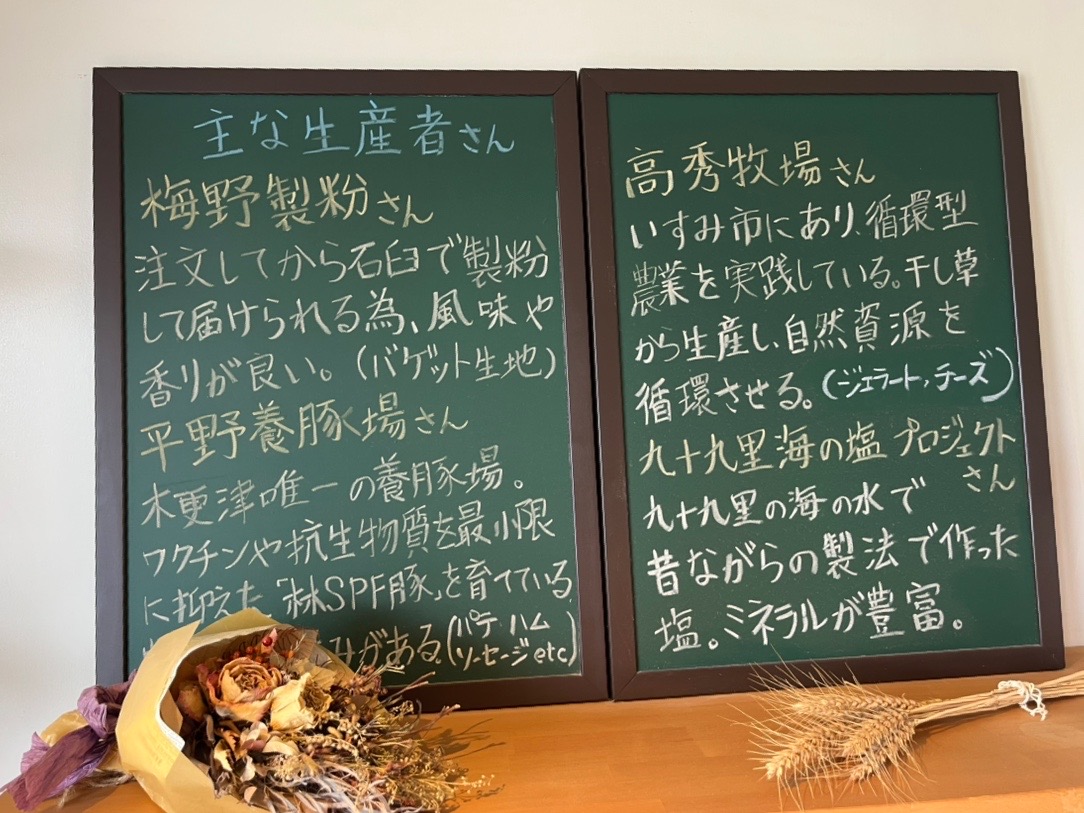 主な生産者さん
梅野製粉さん
注文してから石臼で製粉
して届けられる為、風味や
香りが良い。(バゲット生地)
平野養豚場さん
木更津唯一の養豚場。
ワクチンや抗生物質を最小限
に抑えた「林SPF豚」を育てている
みがある。(パテ ハム
ソーセージetc)
高秀牧場さん
いすみ市にあり、循環型
農業を実践している。干し草
から生産し、自然資源を
循環させる。(ジェラート、チーズ)
九十九里海の塩 プロジェクト
さん
九十九里の海の水で
昔ながらの製法で作った
塩。ミネラルが豊富。